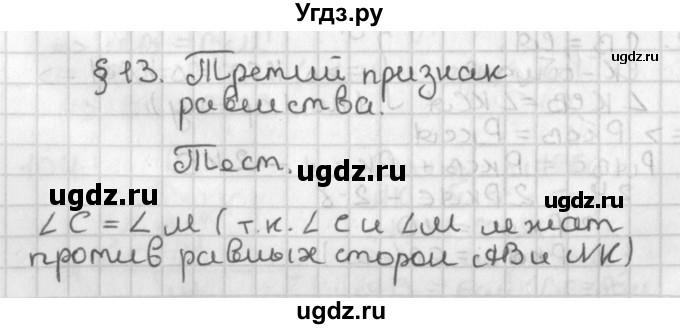 Угдз.ру
§13. Третий признак
равенства.
ugdz.ru ugdz.ru
Тест.
ugdz.ru
∠C = ∠M (т.к. ∠C и ∠M лежат
против равных сторон AB и NK)
ugdz.ru ugdz.ru
ugdz.ru